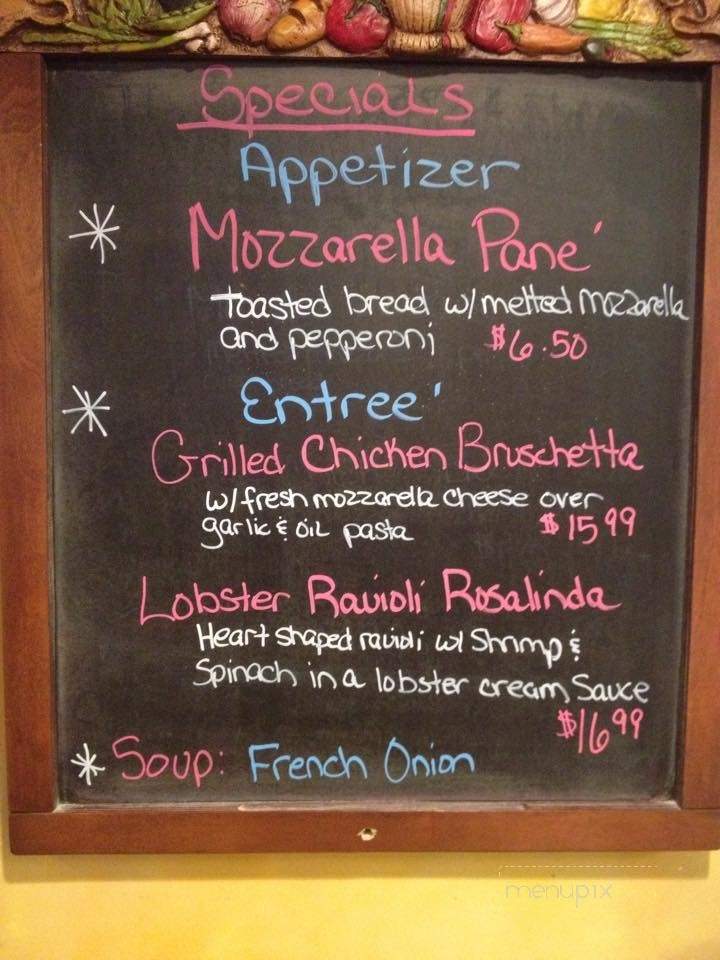 Specials
Appetizer
Mozzarella Pane'
toasted bread w/melted mozzarella
and pepperoni $6.50
Entree'
Grilled Chicken Bruschetta
w/fresh mozzarella cheese over
garlic & oil pasta $15.99
Lobster Ravioli Rosalinda
Heart shaped ravioli w/ Shrimp &
Spinach in a lobster cream Sauce
$16.99
Soup: French Onion
menupix